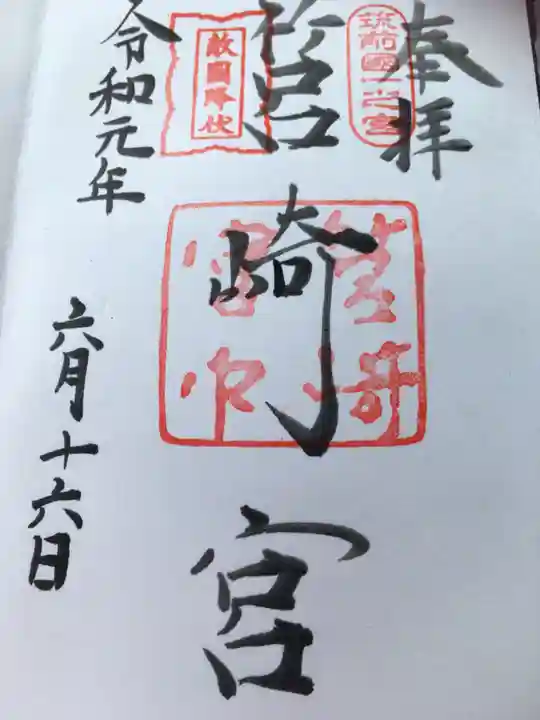 奉拝
筑前國一之宮
筥崎宮
敵國降伏
筥崎宮印
令和元年
六月十六日